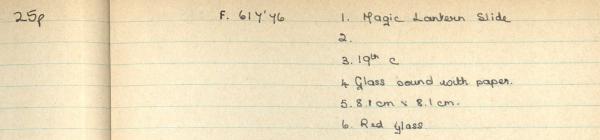 25p F. 61Y'76 1. Magic Lantern Slide
2.
3. 19th C
4. Glass bound with paper.
5. 8.1cm x 8.1cm.
6. Red Glass